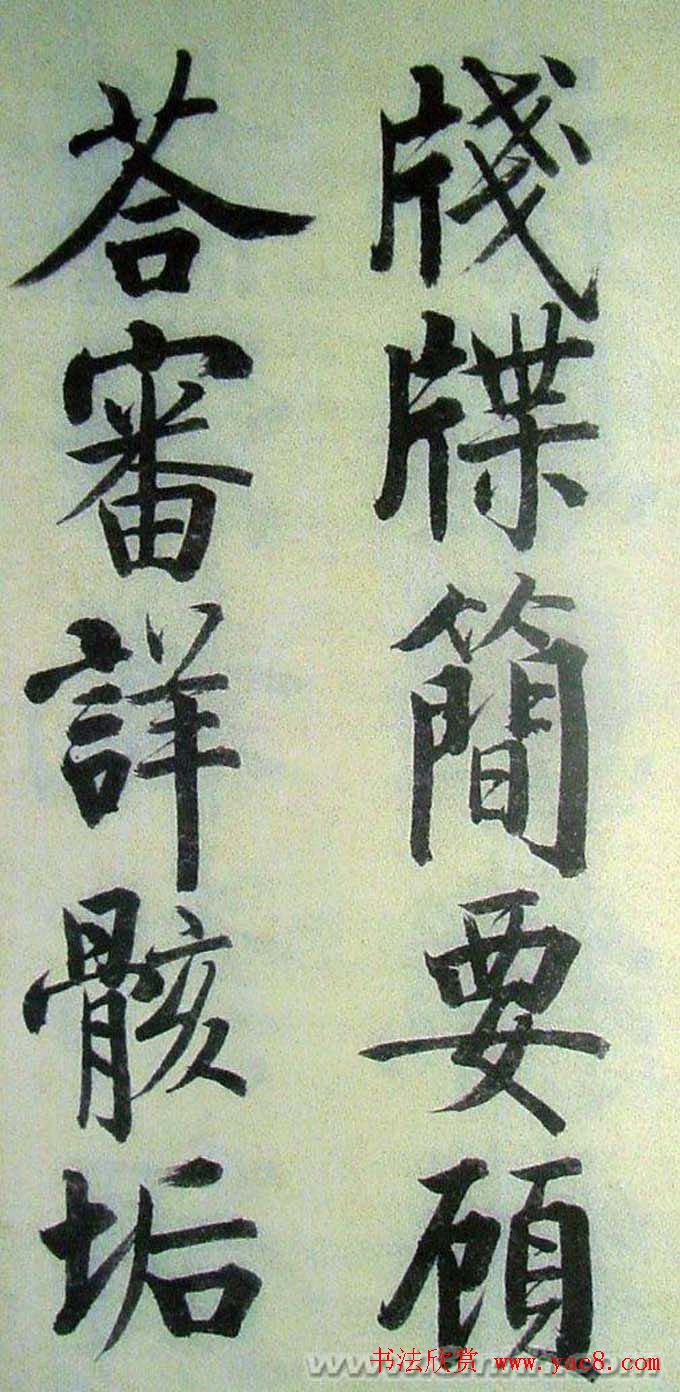 牋牒簡要顧
荅審詳骸垢
书法欣赏 www.yac8.com